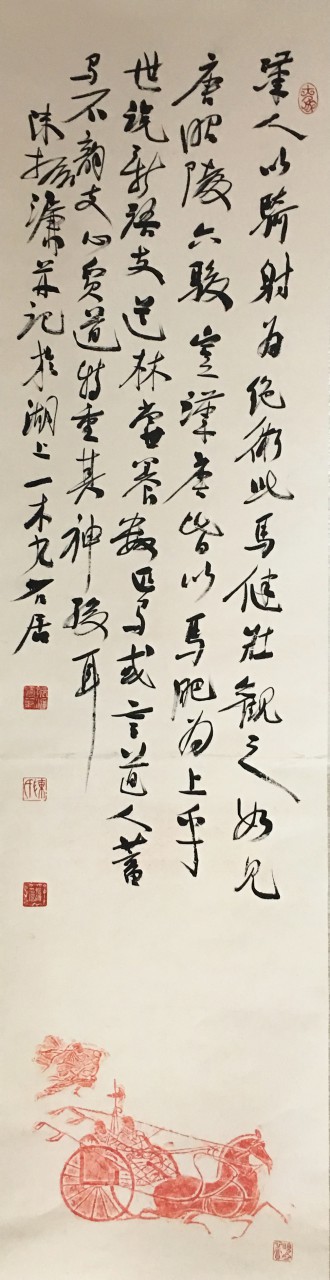 漢人以騎射为绝術此馬健壯觀之如見
唐昭陵六駿豈漢唐皆以馬肥为上乎
世說新語支道林嘗養數匹马或言道人蓄
马不韵支公贫道特重其神駿耳
陳振濂并記於湖上一木九石居